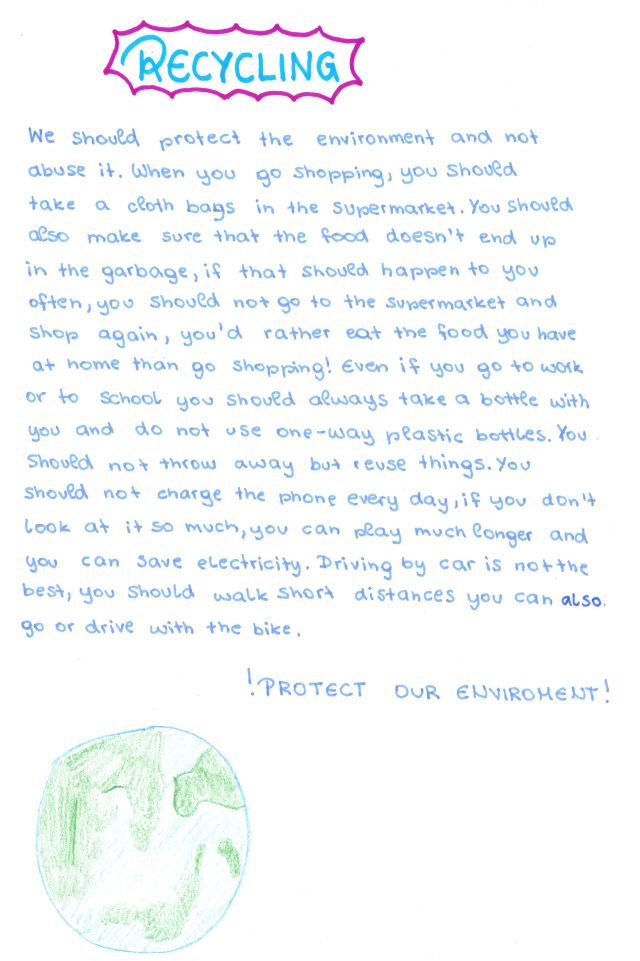 RECYCLING
We should protect the environment and not
abuse it. When you go shopping, you should
take a cloth bags in the supermarket. You should
also make sure that the food doesn't end up
in the garbage, if that should happen to you
often, you should not go to the supermarket and
shop again, you'd rather eat the food you have
at home than go shopping! Even if you go to work
or to school you should always take a bottle with
you and do not use one-way plastic bottles. You
should not throw away but reuse things. You
should not charge the phone every day, if you don't
look at it so much, you can play much longer and
you can save electricity. Driving by car is not the
best, you should walk short distances you can also
go or drive with the bike.
!PROTECT OUR ENVIROMENT!